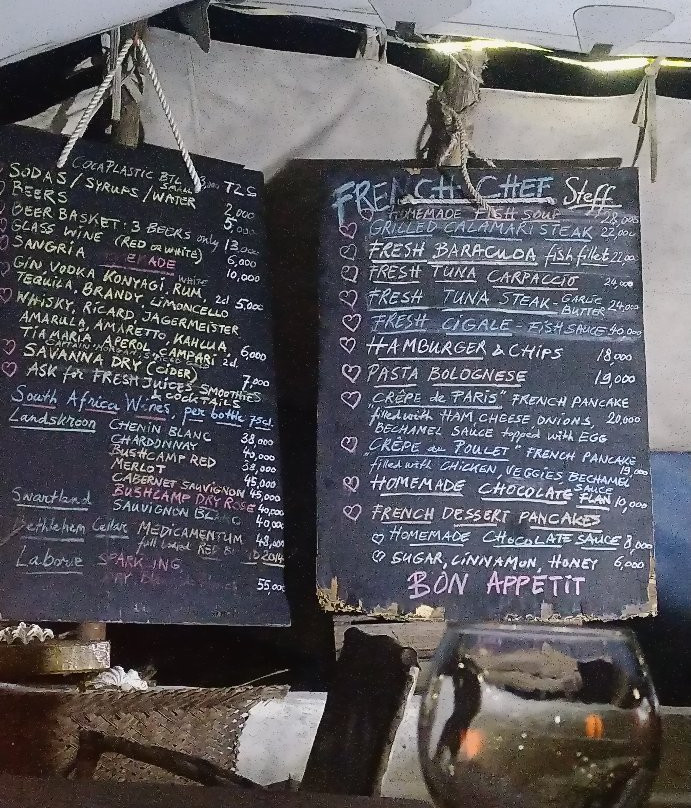 COCAPLASTIC BTL
SODAS / SYRUPS / WATER SMALL TZS
2,000
BEERS 5,000
BEER BASKET: 3 BEERS only 13,000
GLASS WINE (RED or WHITE) 6,000
SANGRIA 10,000
GIN, VODKA KONYAGI, WHITE RUM,
TEQUILA, BRANDY, LIMONCELLO 2cl 5,000
WHISKY, RICARD, JAGERMEISTER
AMARULA, AMARETTO, KAHLUA,
TIA MARIA, APEROL, CAMPARI 2cl. 6,000
SAVANNA DRY (CIDER) 7,000
ASK for FRESH JUICES SMOOTHIES
& COCKTAILS
South Africa Wines, per bottle 75cl.
Landskroon CHENIN BLANC 38,000
CHARDONNAY 40,000
BUSHCAMP RED 38,000
MERLOT 45,000
CABERNET SAUVIGNON 45,000
BUSHCAMP DRY ROSE 40,000
Swartland SAUVIGNON BLANC 40,000
Bethlehem Cellar MEDICAMENTUM 48,000
full bodied RED
Laborie SPARKLING
55,000
FRENCH CHEF Steff
HOMEMADE FISH SOUP
GRILLED CALAMARI STEAK 22,000
FRESH BARACUDA fish fillet 22,000
FRESH TUNA CARPACCIO 24,000
FRESH TUNA STEAK - GARLIC BUTTER 24,000
FRESH CIGALE - FISH SAUCE 40,000
HAMBURGER & CHIPS 18,000
PASTA BOLOGNESE 19,000
"CRÊPE de PARIS" FRENCH PANCAKE
filled with HAM, CHEESE, ONIONS, 20,000
BECHAMEL SAUCE topped with EGG
"CRÊPE au POULET" FRENCH PANCAKE
filled with CHICKEN, VEGGIES BECHAMEL SAUCE 19,000
HOMEMADE CHOCOLATE FLAN 10,000
FRENCH DESSERT PANCAKES
HOMEMADE CHOCOLATE SAUCE 8,000
SUGAR, CINNAMON, HONEY 6,000
BON APPÉTIT